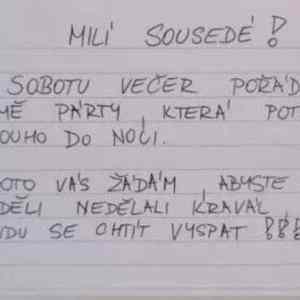 MILÍ SOUSEDÉ!
SOBOTU VEČER POŘÁD
MĚ PÁRTY, KTERÁ POT
OUHO DO NOCI.
OTO VÁS ŽÁDÁM, ABYSTE
DĚLI NEDĚLALI KRAVÁL,
UDU SE CHTÍT VYSPAT!!!